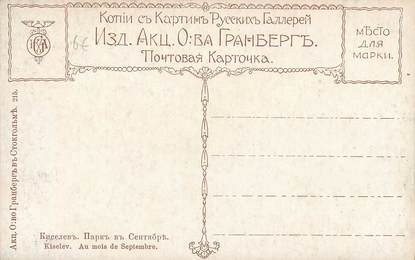 Копіи съ Картинъ Русскихъ Галлерей
Изд. Акц. О:ва Гранбергъ.
Почтовая Карточка.
МѢСТО
ДЛЯ
МАРКИ.
6€
Акц. О:во Гранбергъ въ Стокгольмѣ. 215.
Киселевъ. Паркъ въ Сентябрѣ.
Kiselev. Au mois de Septembre.